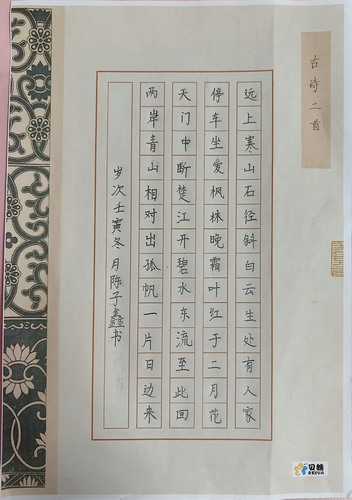 古诗二首
远上寒山石径斜白云生处有人家
停车坐爱枫林晚霜叶红于二月花
天门中断楚江开碧水东流至此回
两岸青山相对出孤帆一片日边来
岁次壬寅冬月陈子鑫书
贝娃
BEIVA